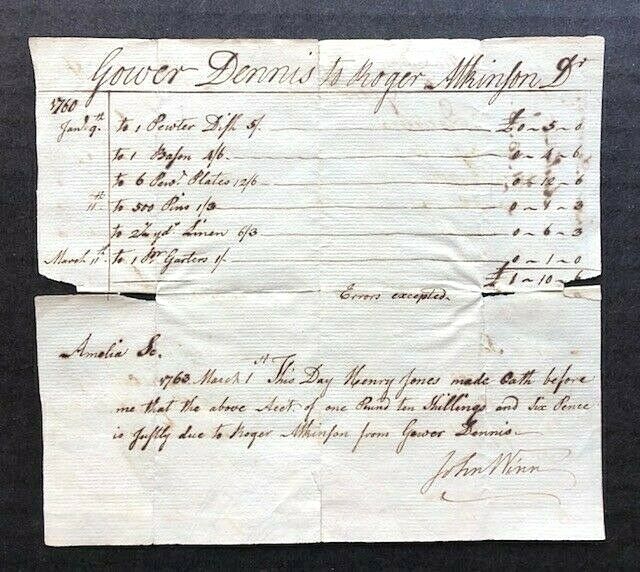 Gower Dennis to Roger Atkinson Dr
1760
Jany 9th to 1 Pewter Dish 5/. £0 ~ 5 ~ 0
to 1 Bason 4/6 0 ~ 4 ~ 6
to 6 Pewr Plates 12/6 0 ~ 12 ~ 6
11th to 500 Pins 1/3 0 ~ 1 ~ 3
to 2½ yds Linen 6/3 0 ~ 6 ~ 3
March 11th to 1 Pr Garters 1/ 0 ~ 1 ~ 0
£1 ~ 10 ~ 6
Errors excepted.
Amelia Sc.
1763 March 1st This Day Henry Jones made Oath before
me that the above Acct. of one Pound ten Shillings and Six Pence
is Justly due to Roger Atkinson from Gower Dennis
John Winn